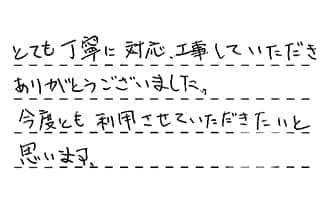 とても丁寧に対応、工事していただき
ありがとうございました。
今度とも利用させていただきたいと
思います。